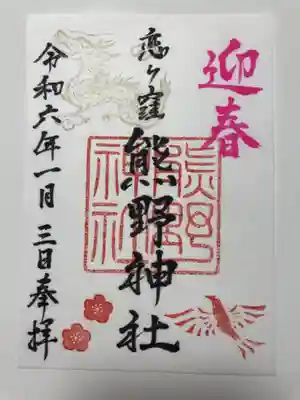 迎春
恋ヶ窪
熊野神社
熊野
神社
令和六年一月三日奉拝